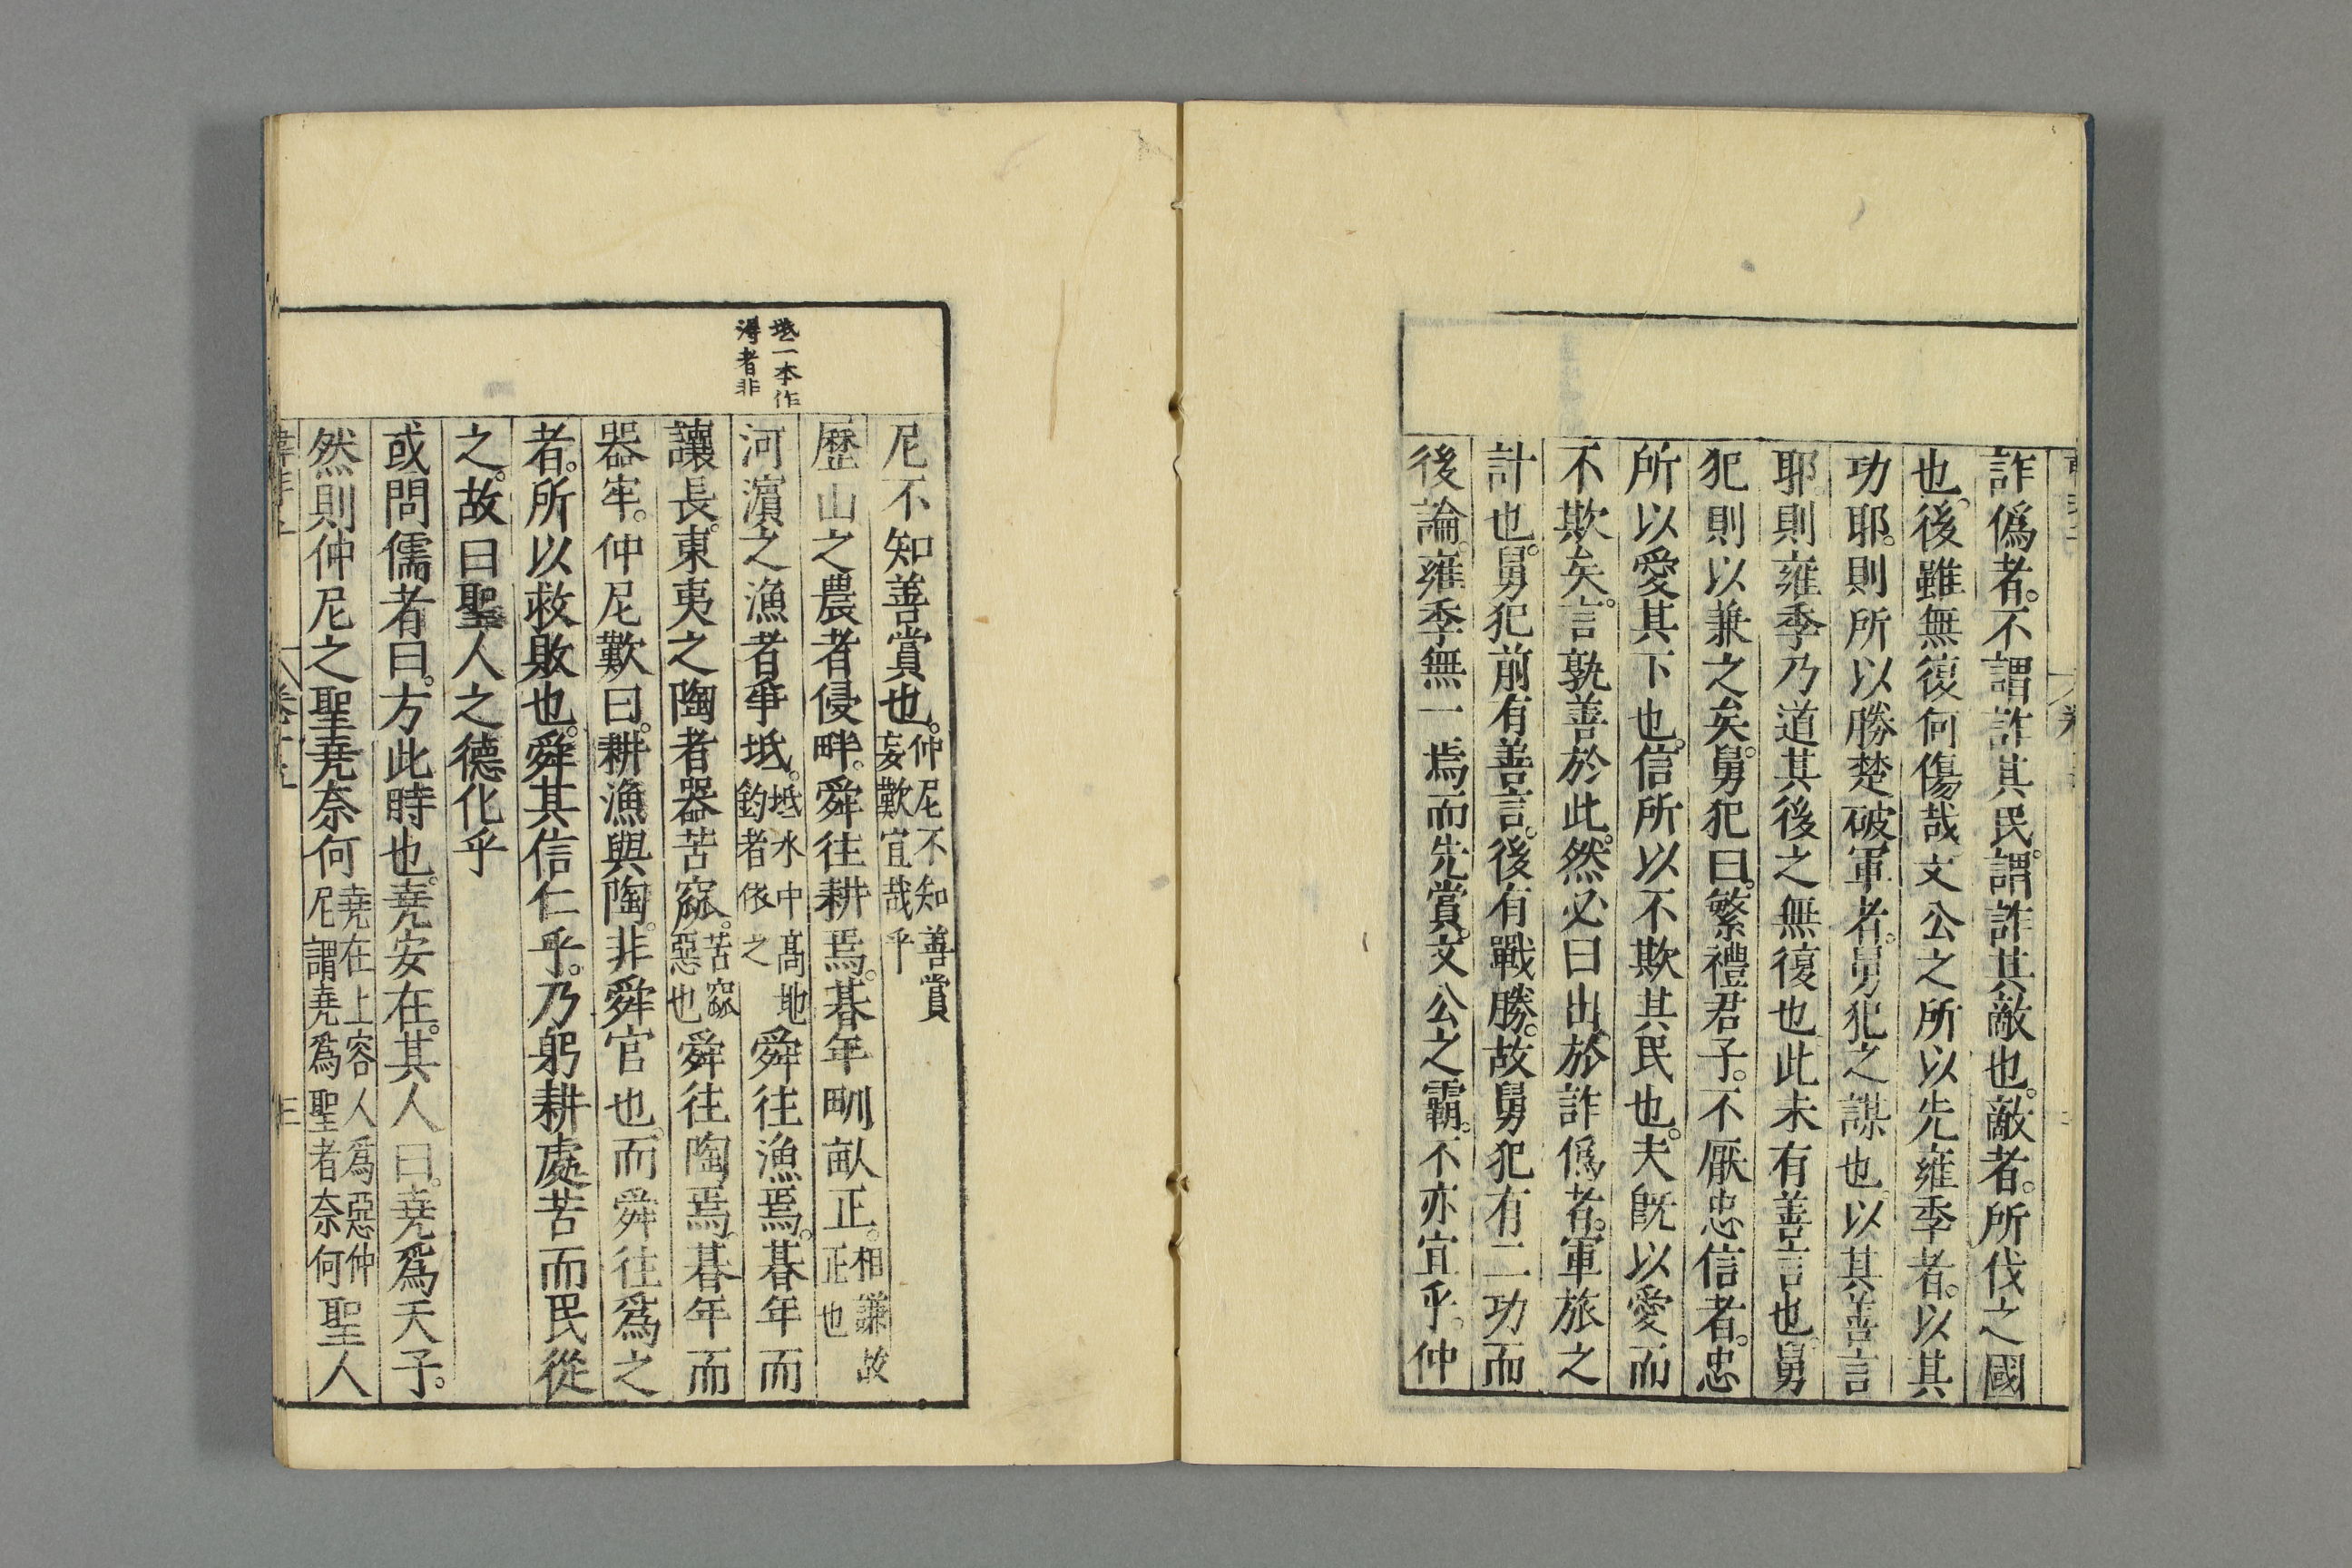 詐僞者。不謂詐其民。謂詐其敵也。敵者。所伐之國
也。後雖無復何傷哉文公之所以先雍季者。以其
功耶。則所以勝楚破軍者。舅犯之謀也。以其善言
耶。則雍季乃道其後之無復也此未有善言也舅
犯則以兼之矣。舅犯曰。繁禮君子。不厭忠信者。忠
所以愛其下也。信所以不欺其民也。夫旣以愛而
不欺矣。言孰善於此。然必曰出於詐僞者。軍旅之
計也。舅犯前有善言。後有戰勝。故舅犯有二功而
後論。雍季無一焉而先賞。文公之霸。不亦宜乎。仲
尼不知善賞也。仲尼不知善賞妄歎宜哉乎
歷山之農者侵畔。舜往耕焉。朞年甽畝正。相謙故正也
坻一本作
得者非
河濵之漁者爭坻。坻水中高地釣者依之舜往漁焉。朞年而
讓長。東夷之陶者器苦窳。苦窳惡也舜往陶焉。朞年而
器牢。仲尼歎曰。耕漁與陶。非舜官也。而舜往爲之
者。所以救敗也。舜其信仁乎。乃躬耕處苦而民從
之。故曰聖人之德化乎
或問儒者曰。方此時也。堯安在。其人曰。堯爲天子。
然則仲尼之聖堯奈何堯在上容人爲惡仲尼謂堯爲聖者奈何聖人
卷十五
三